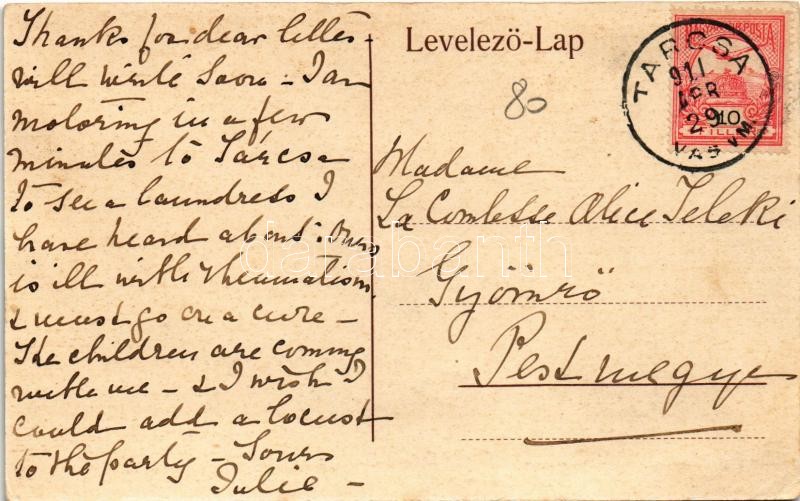 Thanks for dear letter -
will write soon - I am
motoring in a few
minutes to Tárcsa
to see a laundress I
have heard about: Ours
is ill with rheumatism
& must go on a cure -
The children are coming
with me - & I wish I
could add a locust
to the party - Yours
Julie -
Levelező-Lap
80
TARCSA
911
APR
29
VAS VM.
10
Madame
La Comtesse Alice Teleki
Gyömrő
Pestmegye
darabanth